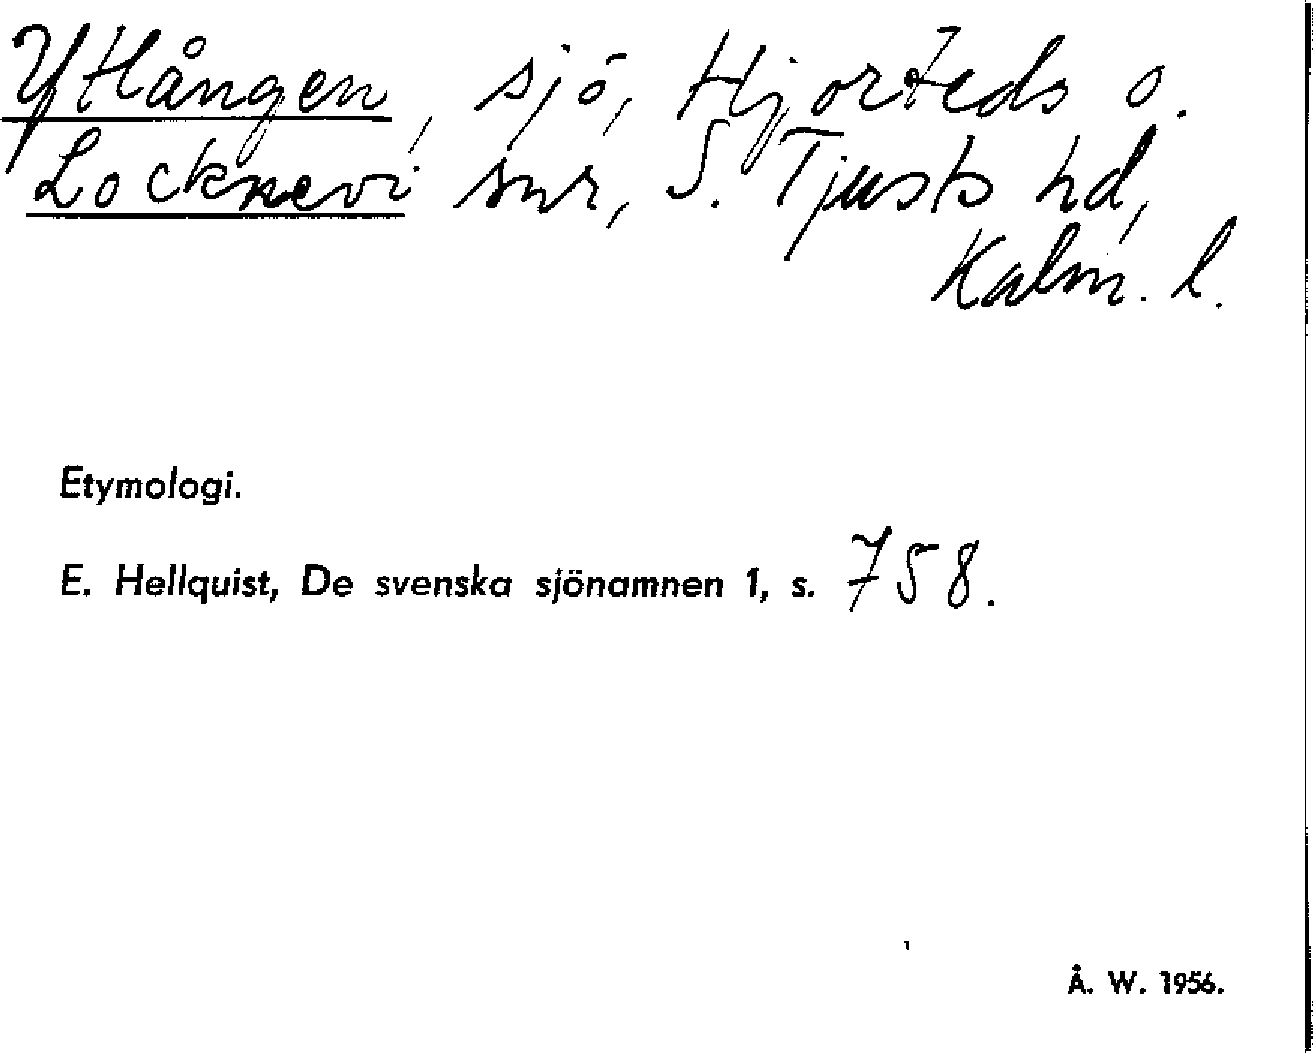 Ytlången, sjö, Hjorteds o.
Locknevi snr, S. Tjusts hd,
Kalm. l.
Etymologi.
E. Hellquist, De svenska sjönamnen 1, s. 758.
Å. W. 1956.